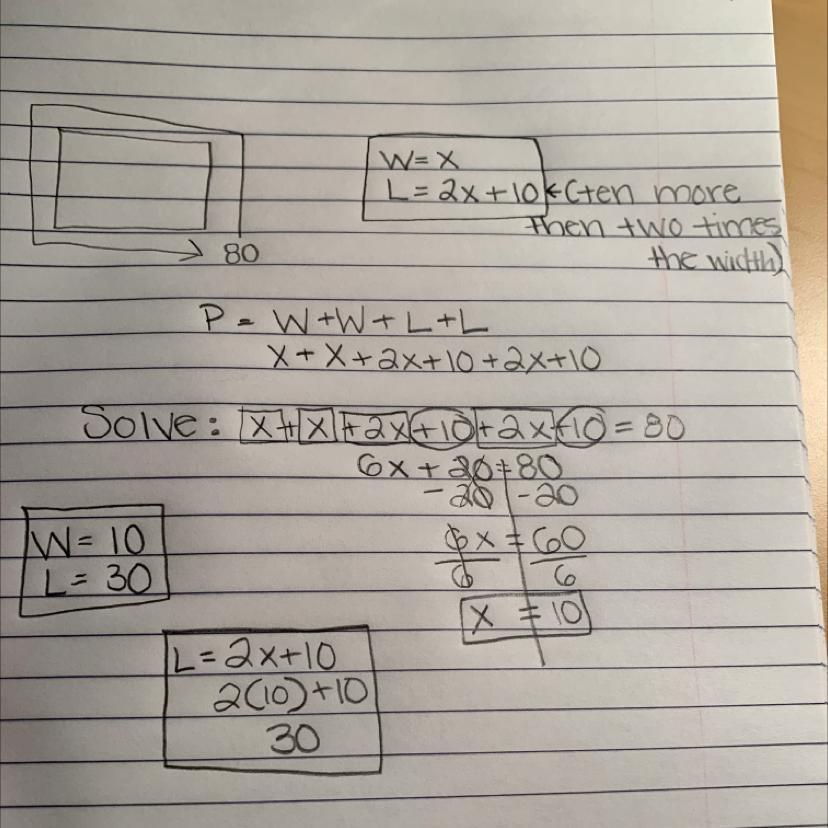 W = x
L = 2x + 10 ← (ten more
then two times
the width)
80
P = W + W + L + L
x + x + 2x + 10 + 2x + 10
Solve: x + x + 2x + 10 + 2x + 10 = 80
6x + 20 = 80
- 20 - 20
6x = 60
6 6
x = 10
W = 10
L = 30
L = 2x + 10
2(10) + 10
30